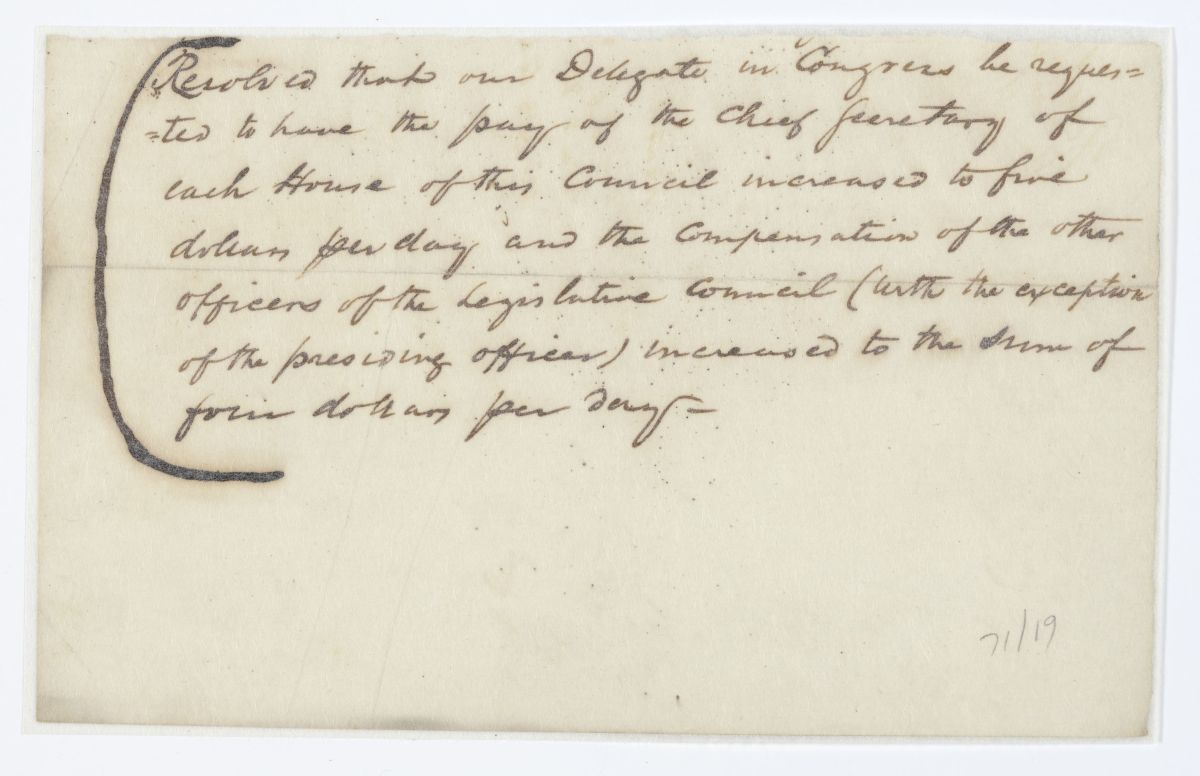 Resolved that our Delegate in Congress be reques=
=ted to have the pay of the Chief Secretary of
each House of this Council increased to five
dollars per day and the compensation of the other
officers of the Legislative Council (with the exception
of the presiding officer) increased to the sum of
four dollars per day—
71/19